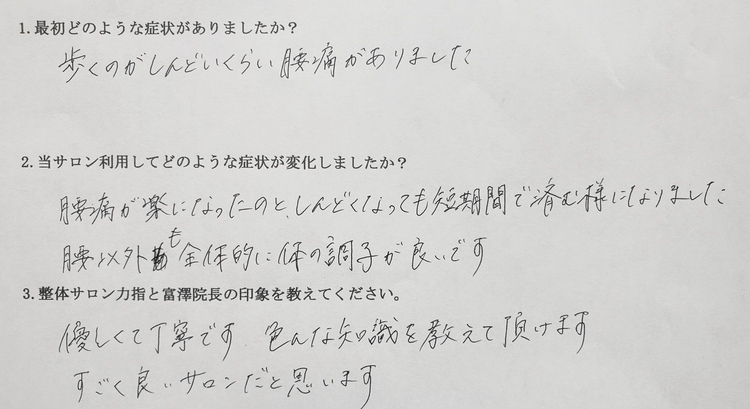 1. 最初どのような症状がありましたか？
歩くのがしんどいくらい腰痛がありました
2. 当サロン利用してどのような症状が変化しましたか？
腰痛が楽になったのと、しんどくなっても短期間で済む様になりました
腰以外も全体的に体の調子が良いです
3. 整体サロン力指と富澤院長の印象を教えてください。
優しくて丁寧です 色んな知識を教えて頂けます
すごく良いサロンだと思います